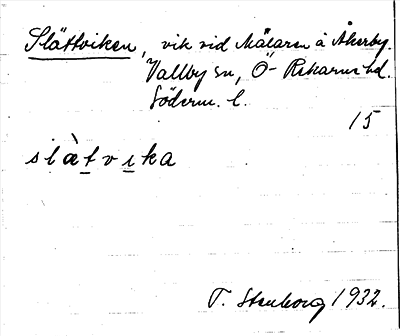 Slättviken, vik vid Mälaren å Åkerby.
Vallby sn, Ö-Rekarne hd.
Söderm. l.
15
slàtvika
T. Stenborg 1932.